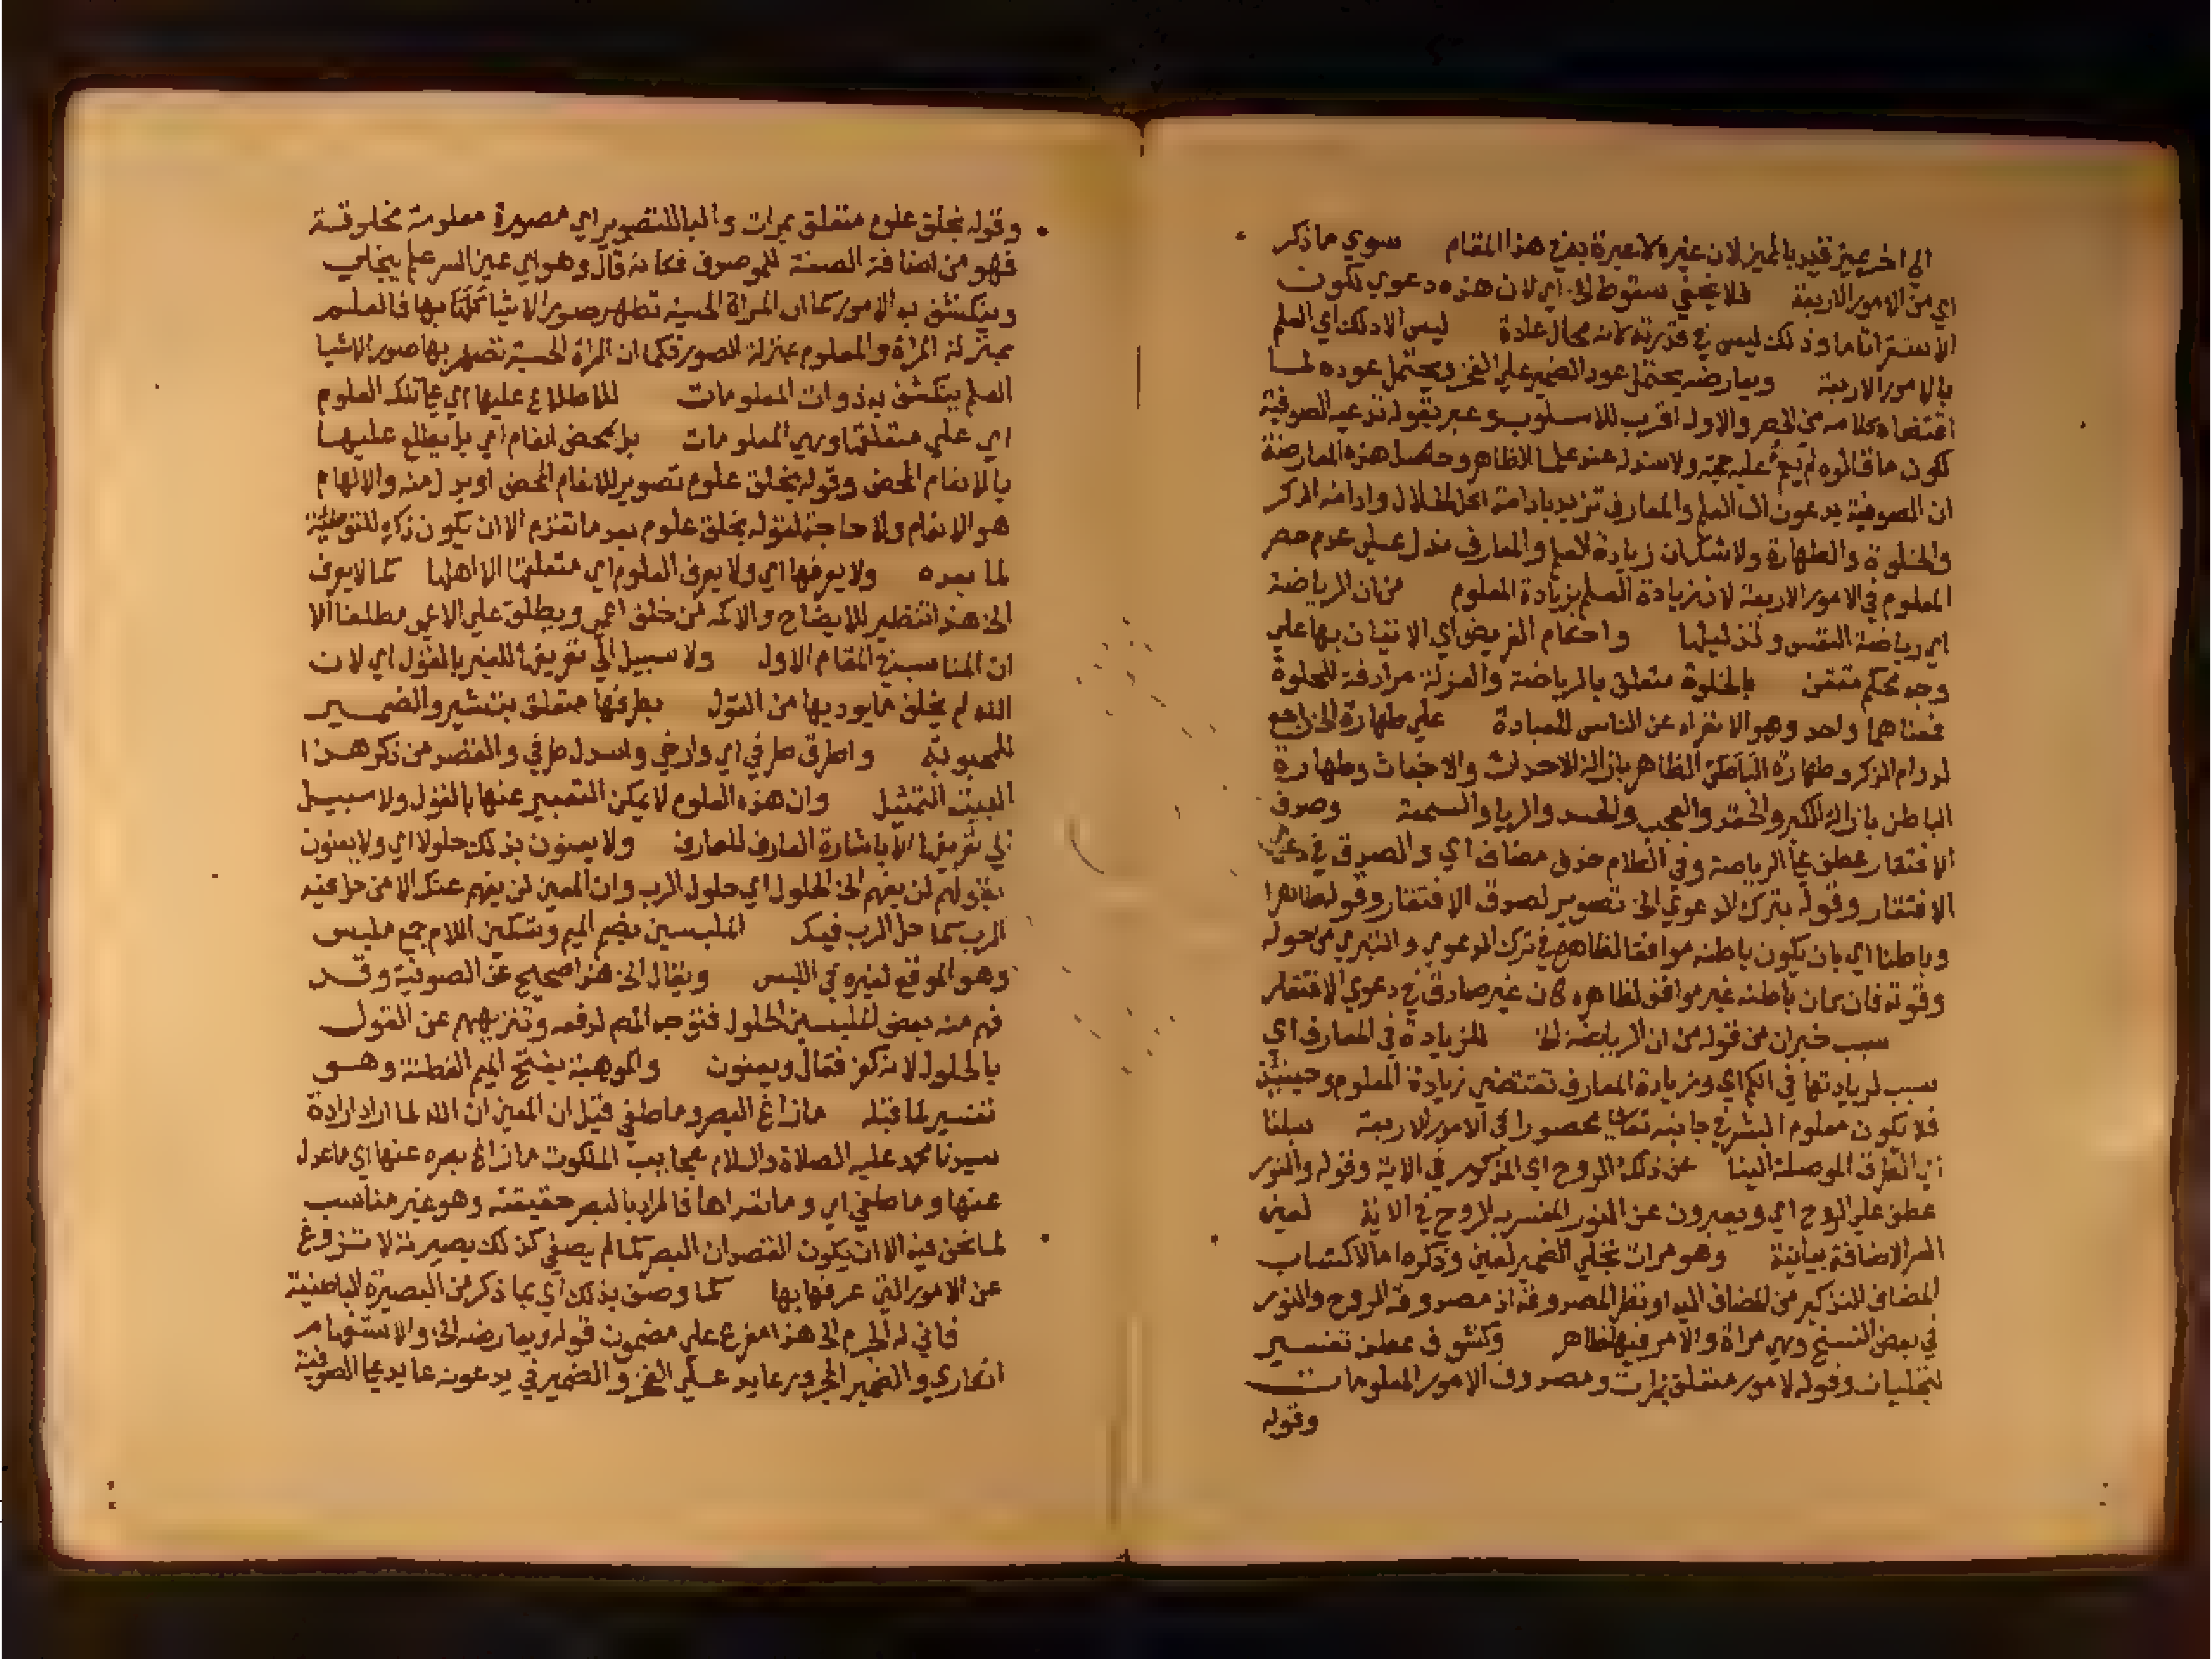 الي اخر مميز قيد بالمميز لان غيره لا عبرة به في هذا المقام سوي ما ذكر
اي من الامور الاربعة فلا يخفي سقوط الخ اي لان هذه دعوي تكون
الا ما وذلك ليس في قدرته لانه محال عادة ليس الا دلكن اي العلم
بالامور الاربعة ويعارضه يحتمل عود الضمير علي الفخر ويحتمل عوده لما
اقتضاه كلامه من الحصر والاول اقرب للاسلوب وعبر بقوله تدعيه الصوفية
لكون ما قالوه لم يقم عليه حجة ولا سند له عند علما الظاهر وحاصل هذه المعارضة
ان الصوفية يدعون ان العلم والمعارف تزيد بادامة اكل الحلال وادامة الذكر
والخلوة والطهارة ولا شك ان زيادة العلم والمعارف تدل علي عدم حصر
المعلوم في الامور الاربعة لان زيادة العلم بزيادة المعلوم من ان الرياضة
اي رياضة النفس وتذليلها واحكام الفريض اي الاتيان بها علي
وجه محكم متقن بالخلوة متعلق بالرياضة والعزلة مرادفة للخلوة
فمعناهما واحد وهو الانفراد عن الناس للعبادة علي طهارة الخ راجع
لدوام الذكر وطهارة الباطن الظاهر بازالة الاحداث والاخباث وطهارة
الباطن بازالة الكبر والحقد والعجب والحسد والريا والسمعة وصدق
الافتقار عطف علي الرياضة وفي الكلام حذف مضاف اي والصدق في دعوي
الافتقار وقوله بترك الدعوي الخ تصوير لصدق الافتقار وقوله ظاهرا
وباطنا اي بان يكون باطنه موافقا لظاهره في ترك الدعوي والتبري من حوله
وقوته فان كان باطنه غير موافق لظاهره كان غير صادق في دعوي الافتقار
سبب خبران من قوله من ان الرياضة الخ للزيادة في المعارف اي
سبب لزيادتها في الكم اي وزيادة المعارف تقتضي زيادة المعلوم وحينئذ
فلا يكون معلوم البشر في جانبه تعالي محصورا في الامور الاربعة سبلنا
اي الطرق الموصلة الينا عن ذلك الروح اي المذكور في الاية وقوله والنور
عطف علي الروح اي ويعبرون عن النور المفسر به الروح في الاية لعين
السر الاضافة بيانية وهو مرات تجلي الضمير لعين وذكره اما لاكتساب
المضاف التذكير من المضاف اليه او نظر المصدوقة اذ مصدوقه الروح والنور
في بعض النسخ وهي مراة والامر فيها ظاهر وكشوف عطف تفسير
لتجليات وقوله لامور متعلق بمرات ومصدوق الامور المعلومات
وقوله
وقوله بخلق علوم متعلق بمرات والبا للتصوير اي مصورة معلومة مخلوقة
فهو من اضافة الصفة للموصوف فكانه قال وهو اي عين السر علم ينجلي
وينكشف به الامور كما ان المراة الحسية تظهر صور الاشيا بها فالعلم
بمنزلة المراة والمعلوم بمنزلة الصور فكما ان المراة الحسية تظهر بها صور الاشيا
العلم ينكشف به ذوات المعلومات للاطلاع عليها اي علي تلك العلوم
اي علي متعلقها وهي المعلومات بل بمحض انعام اي بل يطلع عليها
بالانعام المحض وقوله بخلق علوم تصوير للانعام المحض او بدل منه والالهام
هو الانعام ولا حاجة لقوله بخلق علوم بعد ما تقدم الا ان يكون ذكره للتوطية
لما بعده ولا يعرفها اي ولا يعرف العلوم اي متعلقها الا اهلها كما لا يعرف
الخ هذا تنظير للايضاح والاكمه من خلق اعمي ويطلق علي الاعمي مطلقا الا
ان المناسب في المقام الاول ولا سبيل الي تعريفها للغير بالقول اي لان
الله لم يخلق ما يوديها من القول بطرفها متعلق بتشير والضمير
للمحبوبة واطرق طرفي اي وارخي واسدل طرفي والقصد من ذكر هذا
البيت التمثيل وان هذه العلوم لا يمكن التعبير عنها بالقول ولا سبيل
الي تعريفها الا باشارة العارف للعارف ولا يعنون بذلك حلولا اي ولا يعنون
بقولهم لن يفهم الخ الحلول اي حلول الرب وان المعني لن يفهم عنك الا من حل فيه
الرب كما حل الرب فيك الملبسين بضم الميم وسكين اللام جمع ملبس
وهو الموقع لغيره في اللبس ويقال الخ هذا صحيح عن الصوفية وقد
فهم منه بعض الملبسين الحلول فتوجه المص لدفعه وتنزيههم عن القول
بالحلول لانه كفر فقال ويعنون والموهبة بفتح الميم الفطنة وهو
تفسير لما قبله ما زاغ البصر وما طغي قيل ان المعني ان الله لما اراد ارادة
سيدنا محمد عليه الصلاة والسلام عجايب الملكوت ما زاغ بصره عنها اي ما عدل
عنها وما طغي اي وما تعداها فالمراد بالبصر حقيقته وهو غير مناسب
لما نحن فيه الا ان يكون القصد ان البصر كما لم يصغي كذلك بصيرته لا تزوغ
عن الامور التي عرفها بها كما وصف بذلك اي بما ذكر من البصيرة الباطنية
فاني له الجزم الخ هذا مفرع علي مضمون قوله ويعارضه الخ والاستفهام
انكاري والضمير المجرور عايد علي الفخر والضمير في يدعونه عايد علي الصوفية